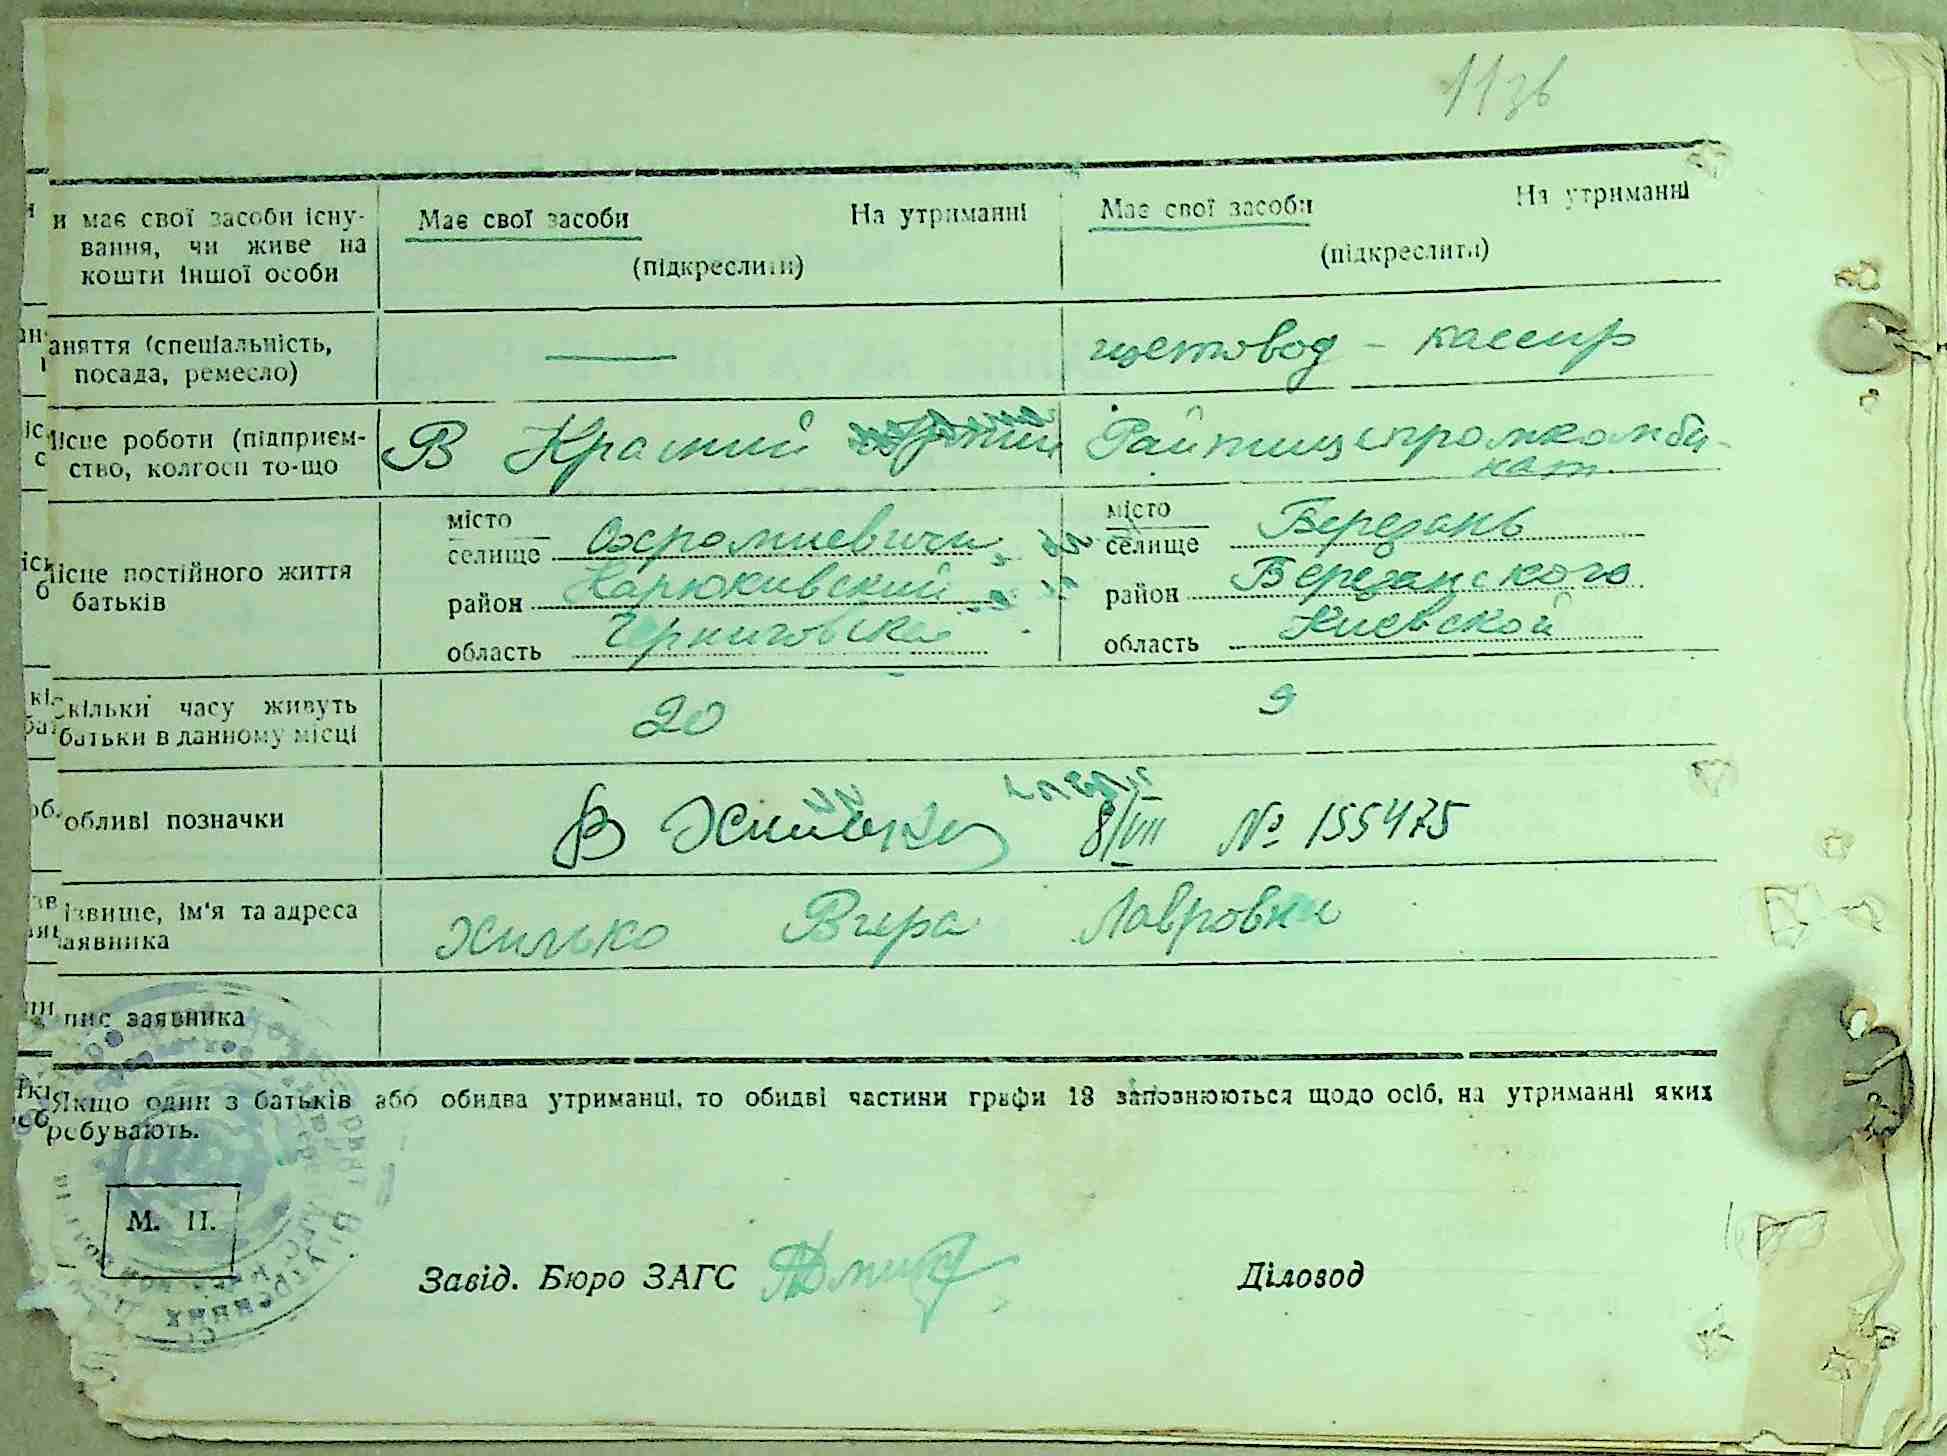 11зв
и має свої засоби існу-
вання, чи живе на
кошти іншої особи
Має свої засоби На утриманні
(підкреслити)
Має свої засоби На утриманні
(підкреслити)
аняття (спеціальність,
посада, ремесло)
щетовод - кассир
Місце роботи (підприєм-
ство, колгосп то-що
В Красний Армии
Райпищепромкомби-
нат
Місце постійного життя
батьків
місто
селище Охромиевичи
район
область Черниговская
місто
селище Березань
район Березанского
область Киевской
Скільки часу живуть
батьки в данному місці
20
9
обливі позначки
8/VII № 155475
ізвище, ім'я та адреса
заявника
Хилько Вера Лавровна
пис заявника
Якщо один з батьків або обидва утриманці, то обидві частини графи 18 заповнюються щодо осіб, на утриманні яких
ребувають.
М. П.
Завід. Бюро ЗАГС
Діловод